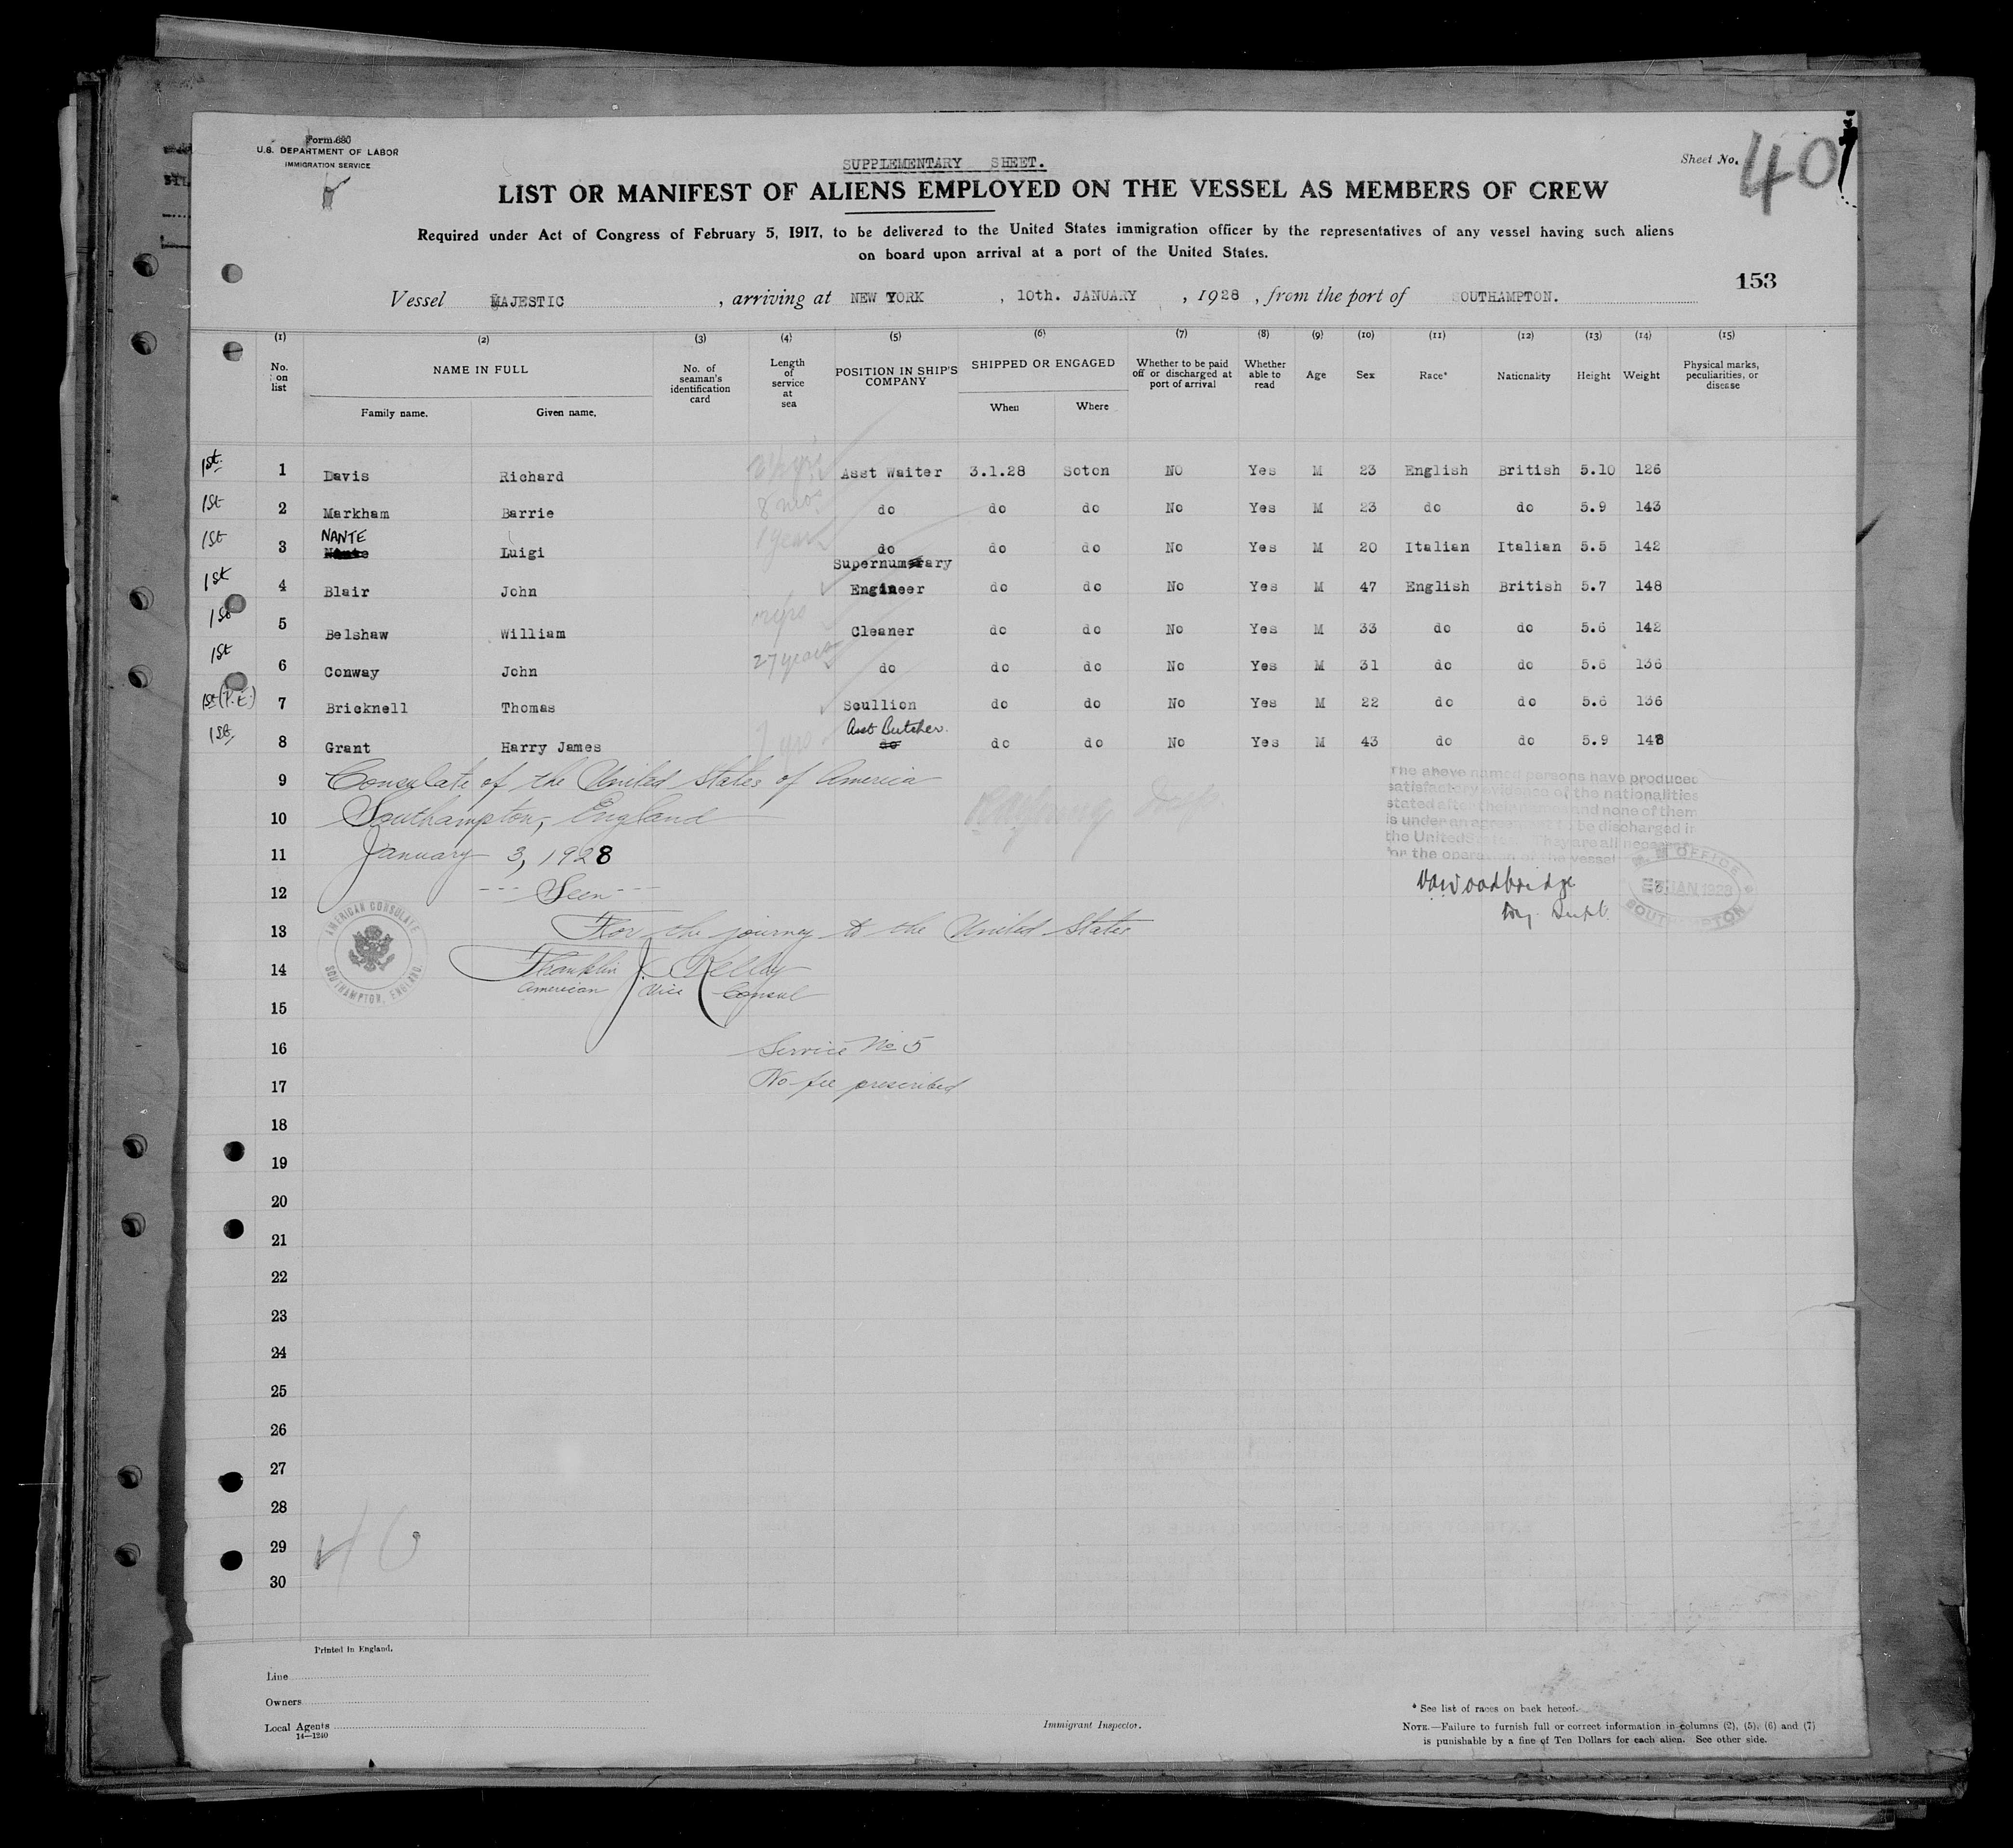 Form 680
U.S. DEPARTMENT OF LABOR
IMMIGRATION SERVICE
SUPPLEMENTARY SHEET.
Sheet No. 40
LIST OR MANIFEST OF ALIENS EMPLOYED ON THE VESSEL AS MEMBERS OF CREW
Required under Act of Congress of February 5, 1917, to be delivered to the United States immigration officer by the representatives of any vessel having such aliens
on board upon arrival at a port of the United States.
153
Vessel MAJESTIC , arriving at NEW YORK , 10th. JANUARY , 1928 , from the port of SOUTHAMPTON.
(1) (2) (3) (4) (5) (6) (7) (8) (9) (10) (11) (12) (13) (14) (15)
No. on list NAME IN FULL No. of seaman's identification card Length of service at sea POSITION IN SHIP'S COMPANY SHIPPED OR ENGAGED Whether to be paid off or discharged at port of arrival Whether able to read Age Sex Race* Nationality Height Weight Physical marks, peculiarities, or disease
Family name. Given name. When Where
1st. 1 Davis Richard Asst Waiter 3.1.28 Soton NO Yes M 23 English British 5.10 126
1st 2 Markham Barrie 8 mos do do do No Yes M 23 do do 5.9 143
NANTE
1st 3 Luigi 1 year do do do No Yes M 20 Italian Italian 5.5 142
Supernumerary
1st 4 Blair John Engineer do do No Yes M 47 English British 5.7 148
1st 5 Belshaw William Cleaner do do No Yes M 33 do do 5.6 142
1st 6 Conway John 27 years do do do No Yes M 31 do do 5.6 136
1st (P.E.) 7 Bricknell Thomas Scullion do do No Yes M 22 do do 5.6 136
Asst Butcher.
1st. 8 Grant Harry James do do do No Yes M 43 do do 5.9 148
9 Consulate of the United States of America
10 Southampton, England
11 January 3, 1928
12 --- Seen ---
13 For the journey to the United States
14 Franklin J. Kelly
American Vice Consul
15
16 Service No 5
17 No fee prescribed
The above named persons have produced
satisfactory evidence of the nationalities
stated after their names and none of them
is under an agreement to be discharged in
the United States. They are all necessary
for the operation of the vessel
OFFICE
JAN 1928
SOUTHAMPTON
AMERICAN CONSULATE
SOUTHAMPTON, ENGLAND.
18
19
20
21
22
23
24
25
26
27
28
29
30
40
Printed in England.
Line
Owners
Local Agents
14—1240
Immigrant Inspector.
* See list of races on back hereof.
NOTE.—Failure to furnish full or correct information in columns (2), (5), (6) and (7)
is punishable by a fine of Ten Dollars for each alien. See other side.